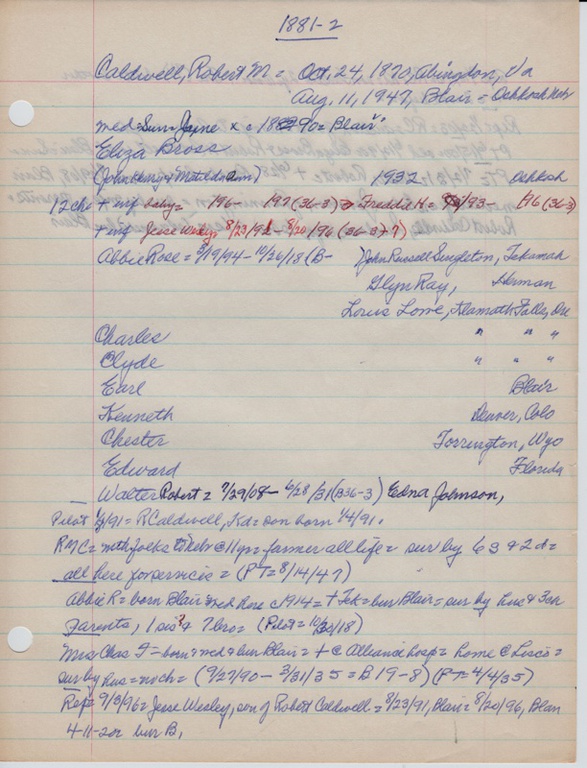 1881-2
Caldwell, Robert M = Oct. 24, 1870, Abingdon, Va
Aug. 11, 1947, Blair = Oshkosh Neb
med = Jane x = 1890 = Blair
Eliza Bross
(John Henry & Matilda) 1932 Oshkosh
12 chs + inf baby = /96- /97 (36-3) Freddie H = /93- /96 (36-3)
+ inf Jesse Wesley 8/23/91 - 8/20/96 (36-3)
Abbie Rose = 3/19/94 - 10/26/18 (B- John Russell Singleton, Tekamah
Glyn Ray, Herman
Louis Lowe, Klamath Falls, Ore
Charles " " "
Clyde " " "
Earl Blair
Kenneth Denver, Colo
Chester Torrington, Wyo
Edward Florida
Walter Robert = 7/29/08 - 6/28/31 (B36-3) Edna Johnson,
Pilot 1/8/91 = R Caldwell, Kd = son born 1/4/91.
RMC = with folks to Neb @ 11 yr = farmer all life = sur by 6 s & 2 d =
all here for service = (PT = 8/14/47)
Abbie R = born Blair & med Rose c 1914 = + Tek = bur Blair = sur by hus & 3 ch
Parents, 1 sis & 7 bro = (Pilot = 10/30/18)
Mrs Chas F = born & med & bur Blair = + @ Alliance hosp = home @ Lisco =
sur by hus = no ch = (9/27/90 - 3/31/35 = B 19-8) (PT = 4/4/35)
Rep = 9/3/96 = Jesse Wesley, son of Robert Caldwell = 8/23/91, Blair = 8/20/96, Blair
4-11-20r bur B,